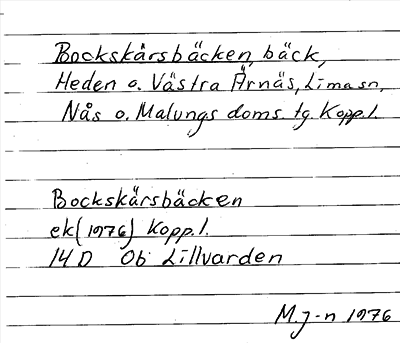 Bockskärsbäcken, bäck,
Heden o. Västra Ärnäs, Lima sn,
Nås o. Malungs doms. tg. Kopp.l.
Bockskärsbäcken
ek (1976) Kopp.l.
14 D Ob Lillvarden
M.J-n 1976